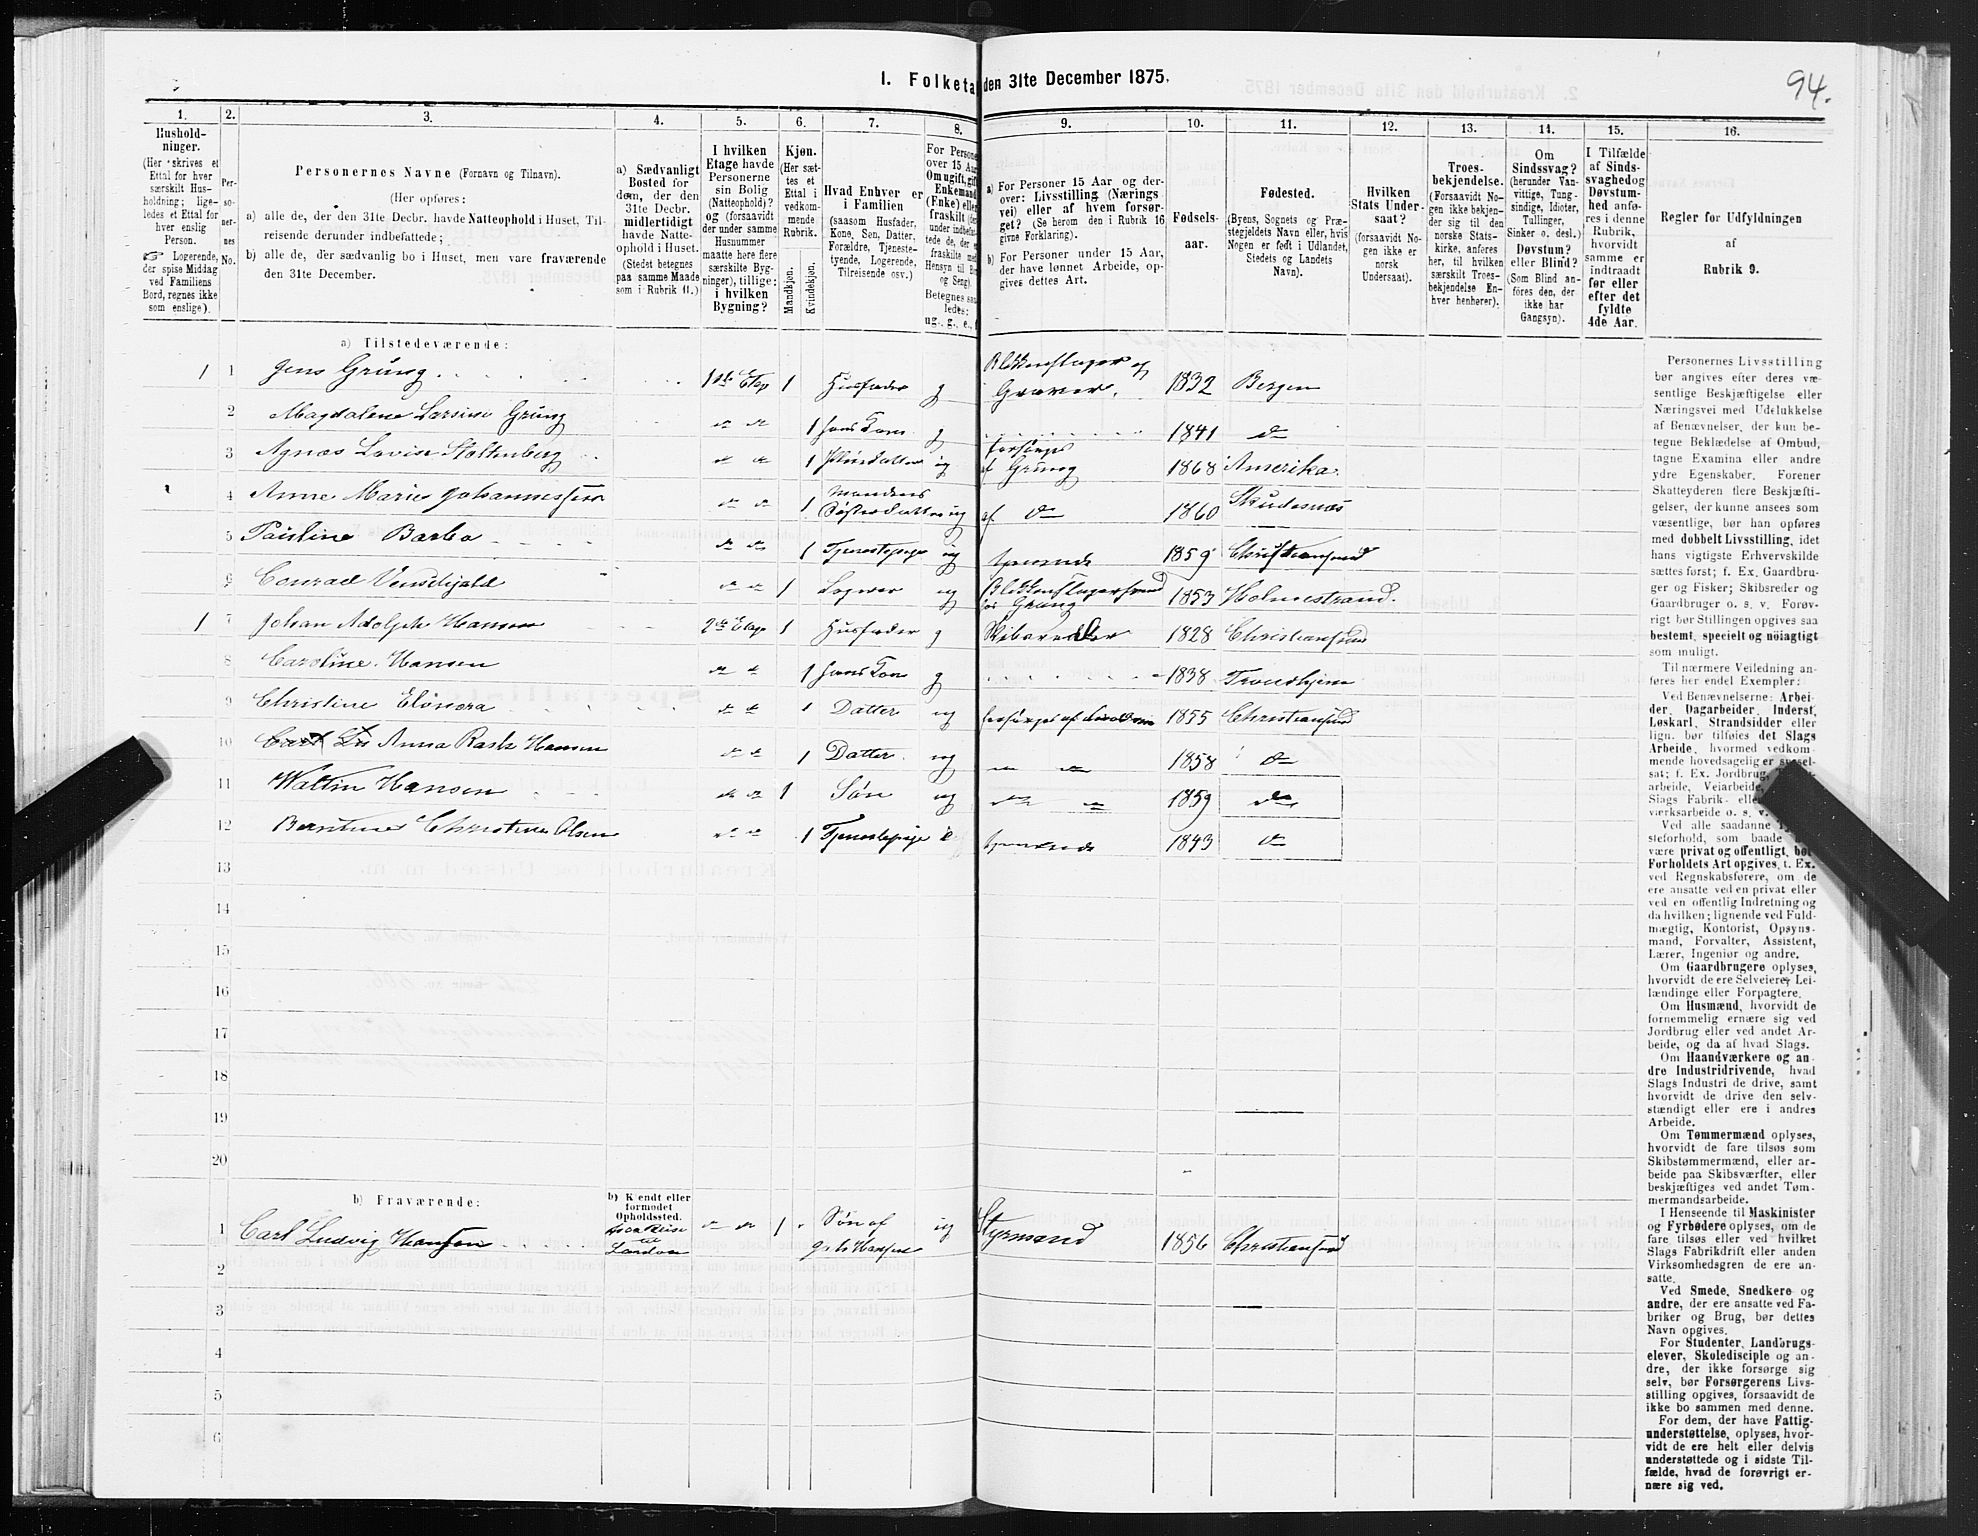 94.
I. Folketa den 31te December 1875.
1. 2. 3. 4. 5. 6. 7. 8. 9. 10. 11. 12. 13. 14. 15. 16.
Hushold-
ninger.
(Her skrives et
Ettal for hver
særskilt Hus-
holdning; lige-
ledes et Ettal for
hver enslig
Person.
☞ Logerende,
der spise Middag
ved Familiens
Bord, regnes ikke
som enslige).
Per-
so-
ner-
nes
No.
Personernes Navne (Fornavn og Tilnavn).
(Her opføres:
a) alle de, der den 31te Decbr. havde Natteophold i Huset, Til-
reisende derunder indbefattede;
b) alle de, der sædvanlig bo i Huset, men vare fraværende
den 31te December.
a) Sædvanligt
Bosted for
dem, der den
31te Decbr.
midlertidigt
havde Natte-
ophold i Huset.
(Stedet betegnes
paa samme Maade
som i Rubrik 11.)
I hvilken
Etage havde
Personerne
sin Bolig
(Natteophold)?
og (forsaavidt
der under samme
Husnummer
maatte høre flere
særskilte Byg-
ninger), tillige:
i hvilken
Bygning?
Kjøn.
(Her sæt-
tes et
Ettal i
vedkom-
mende
Rubrik.
Mandkjøn.
Kvindekjøn.
Hvad Enhver er
i Familien
(saasom Husfader,
Kone, Søn, Datter,
Forældre, Tjeneste-
tyende, Logerende,
Tilreisende osv.)
For Persone
over 15 Aar
Om ugift, gift
Enkemand
(Enke) eller
fraskilt (der
under indbefat-
tede de, der e
fraskilte med
Hensyn til Bo
og Seng).
Betegnes saa
ledes:
ug., g., e., f
a) For Personer 15 Aar og der-
over: Livsstilling (Nærings
vei) eller af hvem forsør-
get? (Se herom den i Rubrik 16
givne Forklaring).
b) For Personer under 15 Aar,
der have lønnet Arbeide, op-
gives dettes Art.
Fødsels-
aar.
Fødested.
(Byens, Sognets og Præ-
stegjeldets Navn eller, hvis
Nogen er født i Udlandet,
Stedets og Landets
Navn).
Hvilken
Stats Under-
saat?
(forsaavidt No-
gen ikke er
norsk
Undersaat).
Troes-
bekjendelse.
(Forsaavidt No-
gen ikke bekjen-
der sig til den
norske Stats-
kirke, anføres
her, til hvilken
særskilt Troes-
bekjendelse En-
hver henhører).
Om
Sindssvag?
(herunder Van-
vittige, Tung-
sindige, Idioter,
Tullinger,
Sinker o. desl.)
Døvstum?
eller Blind?
(Som Blind an-
føres den, der
ikke har
Gangsyn).
I Tilfælde
af Sinds-
svaghed og
Døvstum-
hed anfø-
res i denne
Rubrik,
hvorvidt
samme er
indtraadt
før eller
efter det
fyldte
4de Aar.
Regler for Udfyldningen
af
Rubrik 9.
a) Tilstedeværende:
1 1 Jens Grüng 1ste Etag 1 Husfader g Blikkenslager og Graver. 1832 Bergen
2 Magdalene Larsine Grüng do do 1 hans Kone g 1841 do
3 Agnes Lovise Stoltenberg do do 1 Pleiedatter ug forsørges af Grüng 1868 Amerika.
4 Anne Marie Johannessen do do 1 Mandens Søsterdatter ug af do 1860 Skudesnæs
5 Pauline Barbo do do 1 Tjenestepige ug tjenende 1859 Christiansund
6 Conrad do do 1 Logerer ug Blikkenslagersvend hos Grüng 1853 Holmestrand.
1 7 Johan Adolph Hansen 2de Etage 1 Husfader g Skibsreder 1828 Christiansund
8 Caroline Hansen do do 1 hans Kone g 1838 Trondhjem
9 Christine Elonora do do 1 Datter ug forsørges af 1855 Christiansund
10 Anna Rask Hansen do do 1 Datter ug do do 1858 do
11 Hansen do do 1 Søn ug do do 1859 do
12 Berntine Christine Olsen do do 1 Tjenestepige tjenende 1843 do
13
14
15
16
17
18
19
20
b) Fraværende:
b) Kjendt eller
formodet
Opholdssted.
1 Carl Ludvig Hansen paa Reise til London do do 1 Søn af Hansen ug Styrmand 1856 Christiansund
2
3
4
5
6
Personernes Livsstilling
bør angives efter deres væ-
sentlige Beskjæftigelse eller
Næringsvei med Udelukkelse
af Benævnelser, der kun be-
tegne Beklædelse af Ombud,
tagne Examina eller andre
ydre Egenskaber. Forener
Skatteyderen flere Beskjæfti-
gelser, der kunne ansees som
væsentlige, bør han opføres
med dobbelt Livsstilling, idet
hans vigtigste Erhvervskilde
sættes først; f. Ex. Gaardbru-
ger og Fisker; Skibsreder og
Gaardbruger o. s. v. Forøv-
rigt bør Stillingen opgives saa
bestemt, specielt og nøiagtigt
som muligt.
Til nærmere Veiledning an-
føres her endel Exempler:
Ved Benævnelserne: Arbei-
der, Dagarbeider, Inderst,
Løskarl, Strandsidder eller
lign. bør tilføies det Slags
Arbeide, hvormed vedkom-
mende hovedsagelig er syssel-
sat; f. Ex. Jordbrug,
arbeide, Veiarbeide,
Slags Fabrik- elle
værksarbeide o. s. v.
Ved alle saadanne
steforhold, som baade
være privat og offentligt, bør
Forholdets Art opgives, t. Ex.
ved Regnskabsførere, om de
ere ansatte ved en privat eller
ved en offentlig Indretning og
da hvilken; lignende ved Fuld-
mægtig, Kontorist, Opsyns-
mand, Forvalter, Assistent,
Lærer, Ingeniør og andre.
Om Gaardbrugere oplyses,
hvorvidt de ere Selveiere, Lei-
lændinge eller Forpagtere.
Om Husmænd, hvorvidt de
fornemmelig ernære sig ved
Jordbrug eller ved andet Ar-
beide, og da af hvad Slags.
Om Haandværkere og an-
dre Industridrivende, hvad
Slags Industri de drive, samt
hvorvidt de drive den selv-
stændigt eller ere i andres
Arbeide.
Om Tømmermænd oplyses,
hvorvidt de fare tilsøs som
Skibstømmermænd, eller ar-
beide paa Skibsværfter, eller
beskjæftiges ved andet Tøm-
mermandsarbeide.
I Henseende til Maskinister
og Fyrbødere oplyses, om de
fare tilsøs eller ved hvilket
Slags Fabrikdrift eller anden
Virksomhedsgren de ere an-
satte.
Ved Smede, Snedkere og
andre, der ere ansatte ved Fa-
briker og Brug, bør dettes
Navn opgives.
For Studenter, Landbrugs-
elever, Skoledisciple og an-
dre, der ikke forsørge sig
selv, bør Forsørgerens Livs-
stilling opgives, forsaavidt de
ikke bo sammen med denne.
For dem, der have Fattig-
understøttelse, oplyses, hvor-
vidt de ere helt eller delvis
understøttede og i sidste Til-
fælde, hvad de forøvrigt er-
nære sig ved.